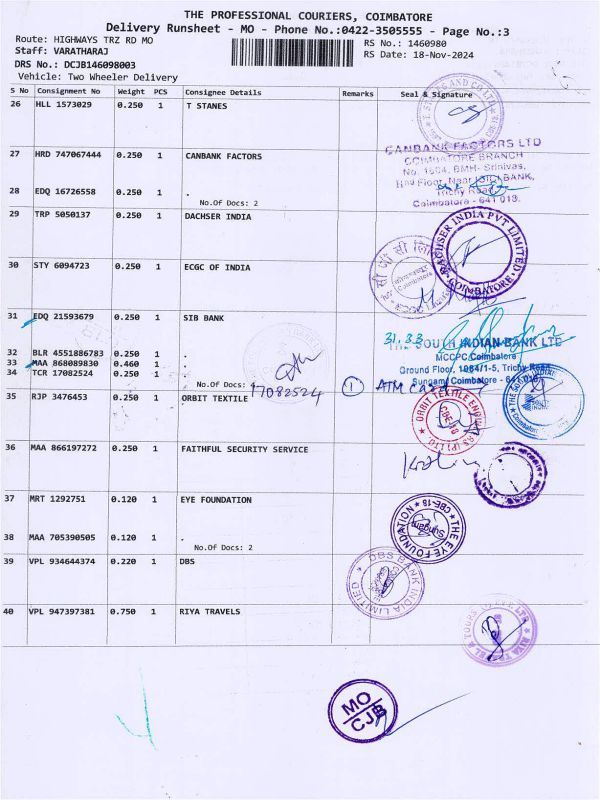 THE PROFESSIONAL COURIERS, COIMBATORE
Delivery Runsheet - MO - Phone No.:0422-3505555 - Page No.:3
Route: HIGHWAYS TRZ RD MO RS No.: 1460980
Staff: VARATHARAJ RS Date: 18-Nov-2024
DRS No.: DCJB146098003
Vehicle: Two Wheeler Delivery
S No Consignment No Weight PCS Consignee Details Remarks Seal & Signature
26 HLL 1573029 0.250 1 T STANES
27 HRD 747067444 0.250 1 CANBANK FACTORS
CANBANK FACTORS LTD
COIMBATORE BRANCH
No. 1604, BMH- Srinivas,
Trichy Road
Coimbatore - 641 018.
28 EDQ 16726558 0.250 1 .
No.Of Docs: 2
29 TRP 5050137 0.250 1 DACHSER INDIA
DACHSER INDIA PVT LIMITED
COIMBATORE
30 STY 6094723 0.250 1 ECGC OF INDIA
31 EDQ 21593679 0.250 1 SIB BANK
31,33
THE SOUTH INDIAN BANK LTD
MCCPC Coimbatore
Ground Floor, 1084/1-5, Trichy Road
Sungam Coimbatore - 641 018
32 BLR 4551886783 0.250 1 .
33 MAA 868089830 0.460 1 .
34 TCR 17082524 0.250 1 .
No.Of Docs:
17082524 1 ATM
35 RJP 3476453 0.250 1 ORBIT TEXTILE
36 MAA 866197272 0.250 1 FAITHFUL SECURITY SERVICE
37 MRT 1292751 0.120 1 EYE FOUNDATION
THE EYE FOUNDATION
CBE-18
Sungam
38 MAA 705390505 0.120 1 .
No.Of Docs: 2
39 VPL 934644374 0.220 1 DBS
DBS BANK INDIA LIMITED
40 VPL 947397381 0.750 1 RIYA TRAVELS
MO
CJB